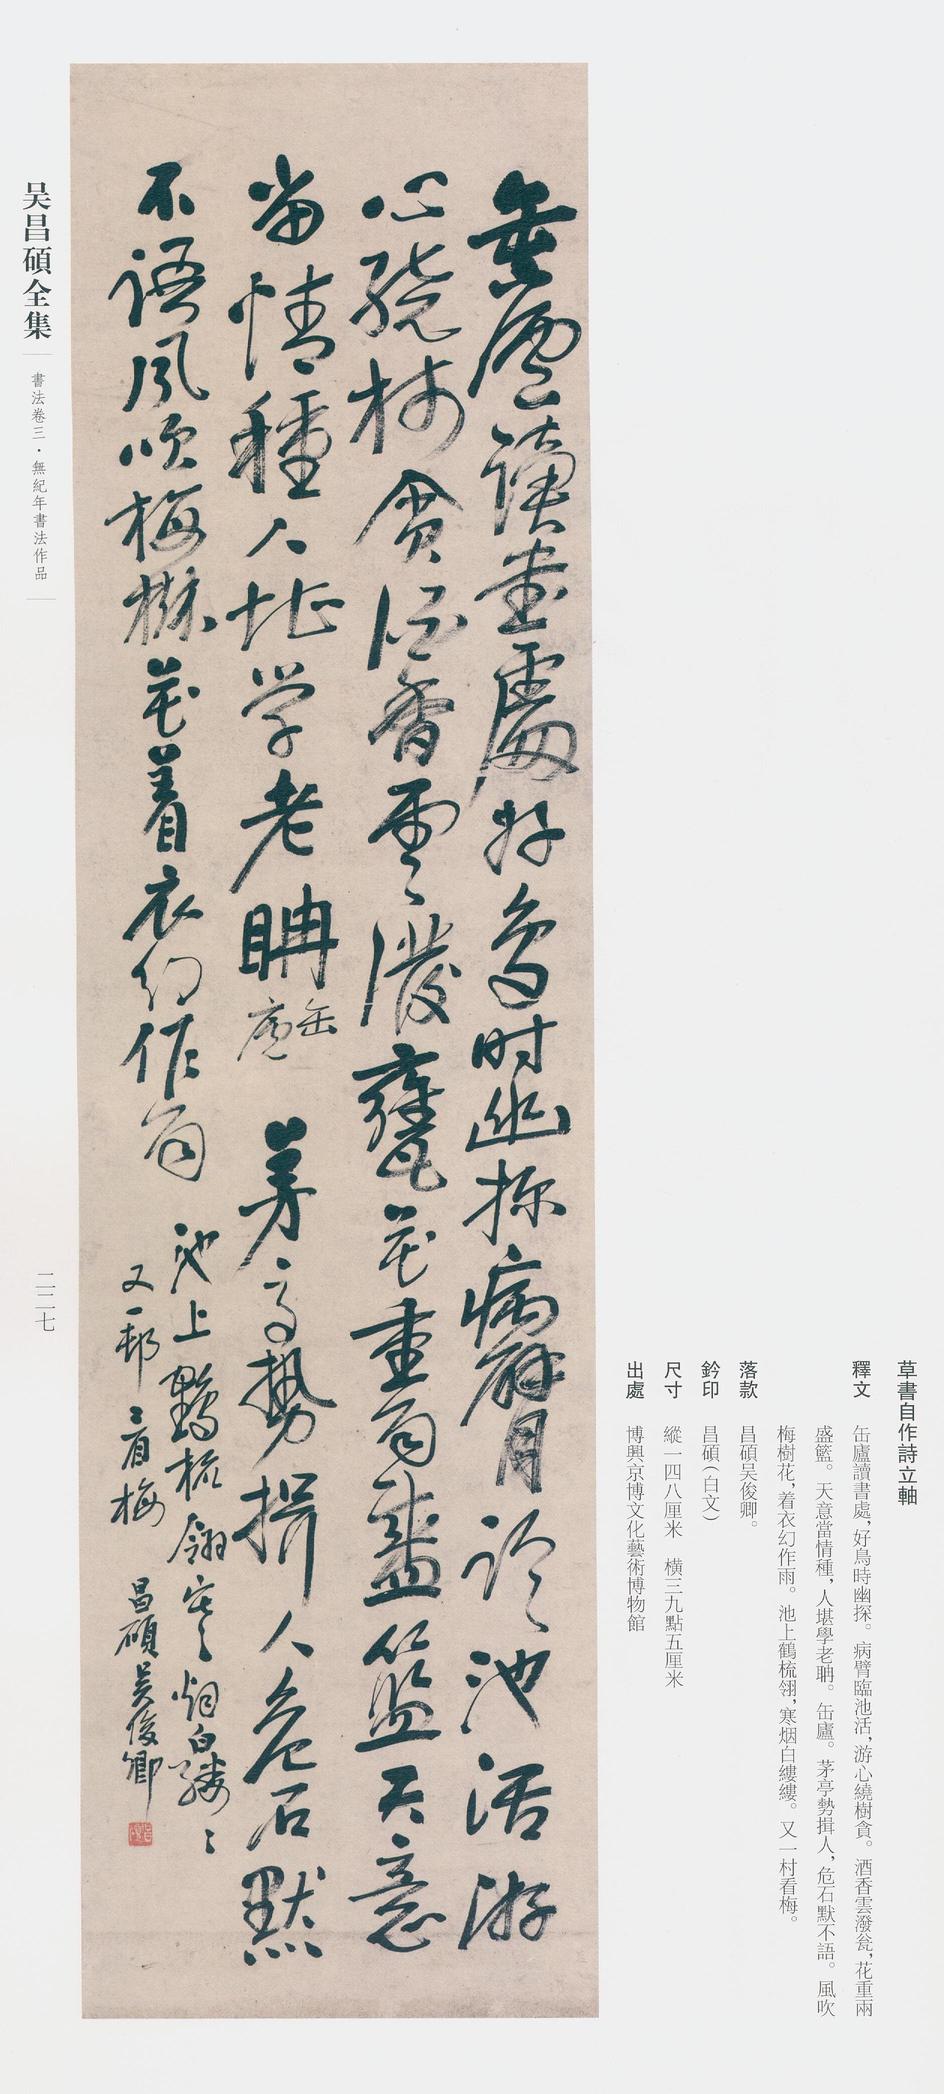 草書自作詩立軸
釋文 缶廬讀書處，好鳥時幽探。病臂臨池活，游心繞樹貪。酒香雲潑瓮，花重雨
盛籃。天意當情種，人堪學老聃。缶廬。茅亭勢揖人，危石默不語。風吹
梅樹花，着衣幻作雨。池上鶴梳翎，寒烟白縷縷。又一村看梅。
落款 昌碩吴俊卿。
鈐印 昌碩（白文）
尺寸 縱一四八厘米 橫三九點五厘米
出處 博興京博文化藝術博物館
缶廬讀書處好鳥時幽探病臂臨池活游
心繞樹貪酒香雲潑甕花重雨盛籃天意
當情種人堪學老聃缶廬 茅亭勢揖人危石默
不語風吹梅樹花着衣幻作雨
池上鶴梳翎寒烟白縷〻
又一邨看梅 昌碩吴俊卿
吴昌碩全集
書法卷三·無紀年書法作品
二二七